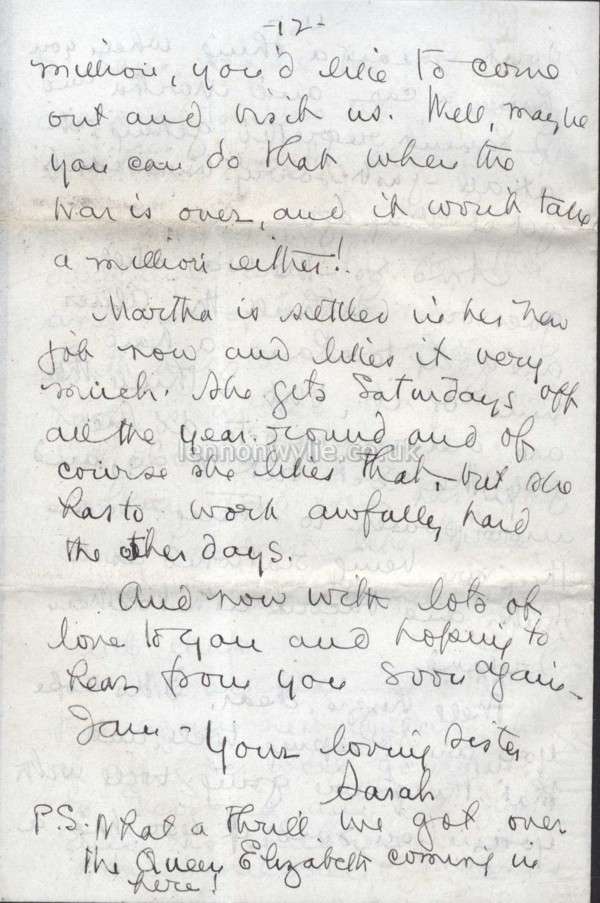 -12-
million, you'd like to come
out and visit us. Well, maybe
you can do that when the
war is over, and it won't take
a million either!
Martha is settled in her new
job now and likes it very
much. She gets Saturdays off
all the year round and of
course she likes that, but she
has to work awfully hard
the other days.
And now with lots of
love to you and hoping to
hear from you soon again -
I am - Your loving sister
Sarah
P.S. What a thrill we got over
the Queen Elizabeth coming in
here!
lennonwylie.co.uk